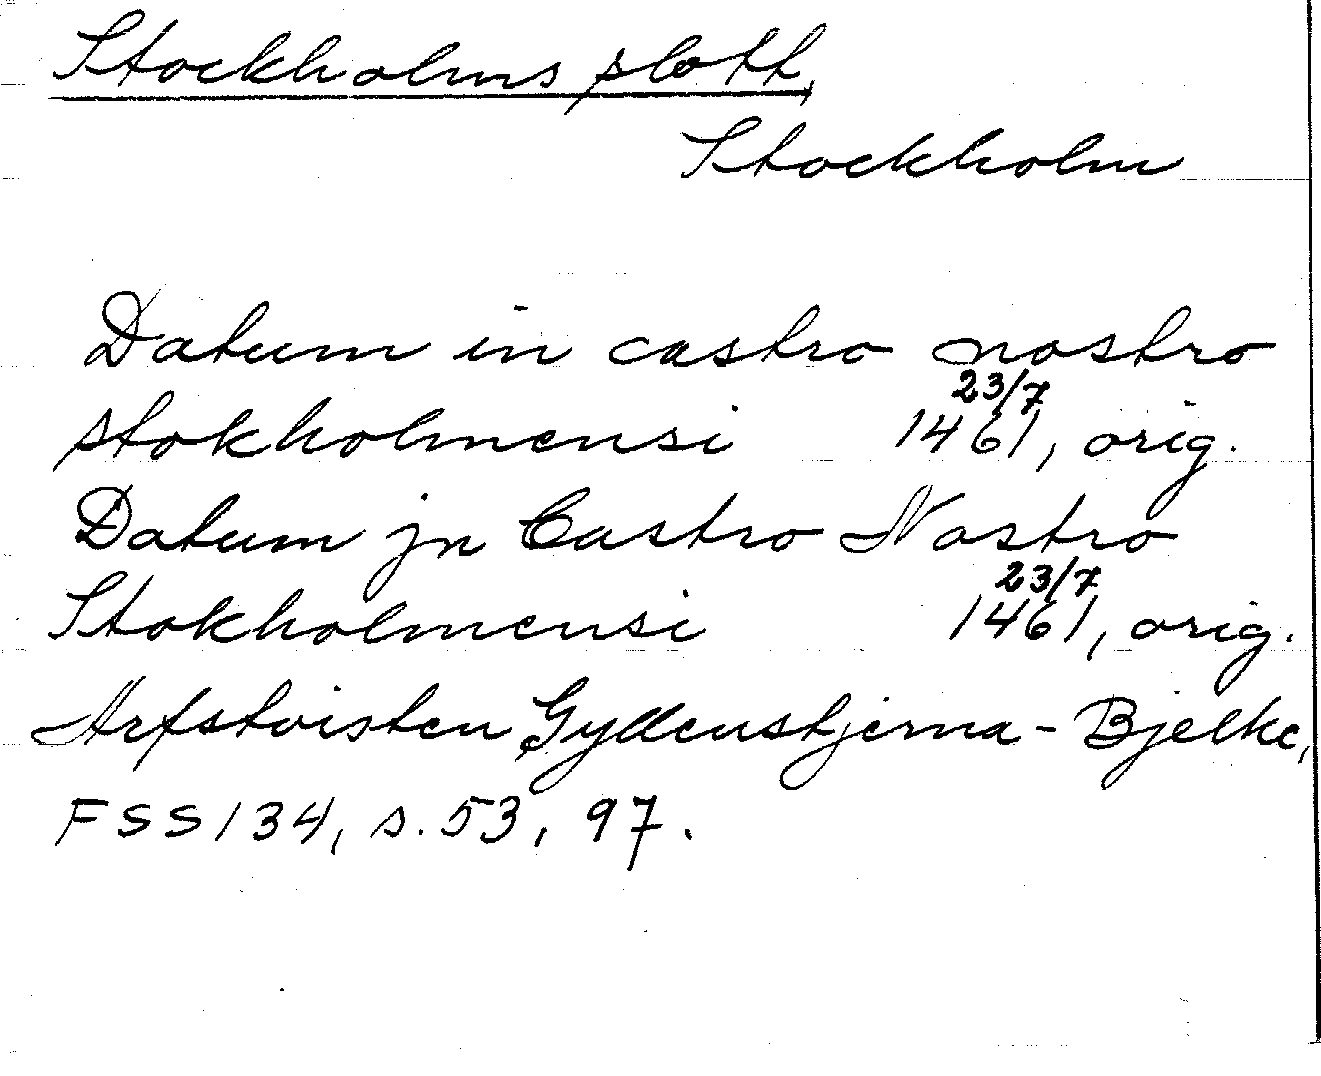 Stockholms slott,
Stockholm
Datum in castro nostro
stokholmensi 23/7 1461, orig.
Datum jn Castro Nostro
Stokholmensi 23/7 1461, orig.
Arfstvisten Gyllenstjerna - Bjelke,
FSS 134, s. 53, 97.